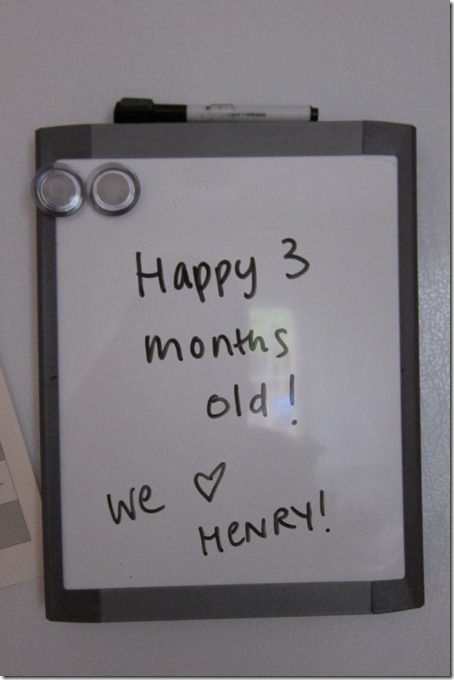 Happy 3
months
old!
we ♡
HENRY!